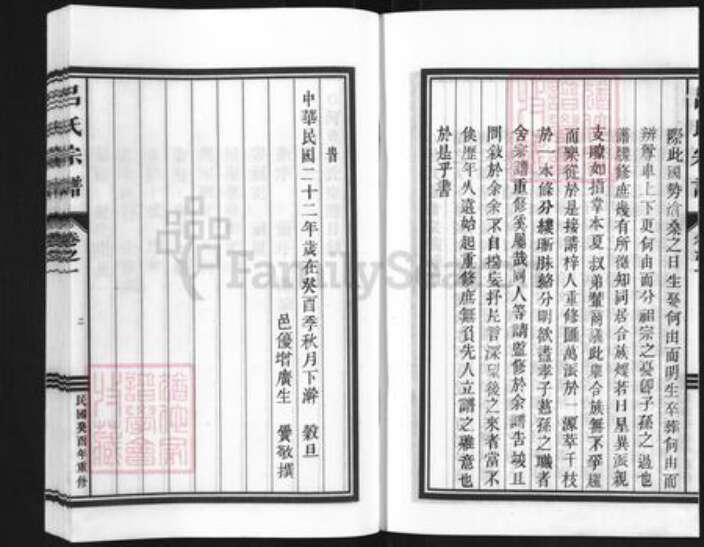 際此國勢滄桑之日生娶何由而明生卒葬何由而
辨尊卑上下更何由而分祖宗之憂卽子孫之過也
譜牒修庶幾有所徵知同居合族燦若日星異派親
支瞭如指掌本夏叔弟輩商議此舉合族無不爭趨
而樂從於是接譜梓人重修匯萬派於一源萃千枝
於一本條分縷晰脉絡分明欲盡孝子慈孫之職者
舍宗譜重修奚屬哉同人等請監修於余譜告竣且
問敘於余余不自揚妄抒片言深望後之來者當不
俟歷年久遠始起重修庶無負先人立譜之雅意也
於是乎書
中華民國二十二年歲在癸酉季秋月下澣 穀旦
邑優增廣生 敬撰
呂氏宗譜
卷之一
二
民國癸酉年重修
FamilySearch